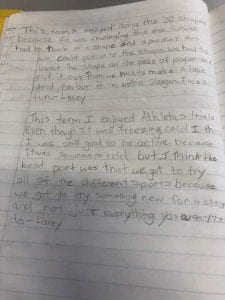 This term I enjoyed doing the 3D shapes
because it was challenging and also fun. We
had to think of a shape and a product that
we could put in to the shape. We had to
print the shape on the piece of paper and
cut it out then we had to make a lable
and colour it in with a Slogan. It was
fun - Lacey
This term I enjoyed Athletics trials
Even though it was freezing cold I
I was still good to be active because
it was sooooooo cold but I think the
best part was that we got to try
all of the different sports because
we got to try something new for a
and not just everything you
da - Lacey